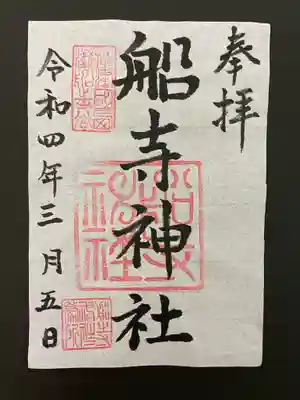 奉拝
船寺神社
令和四年三月五日